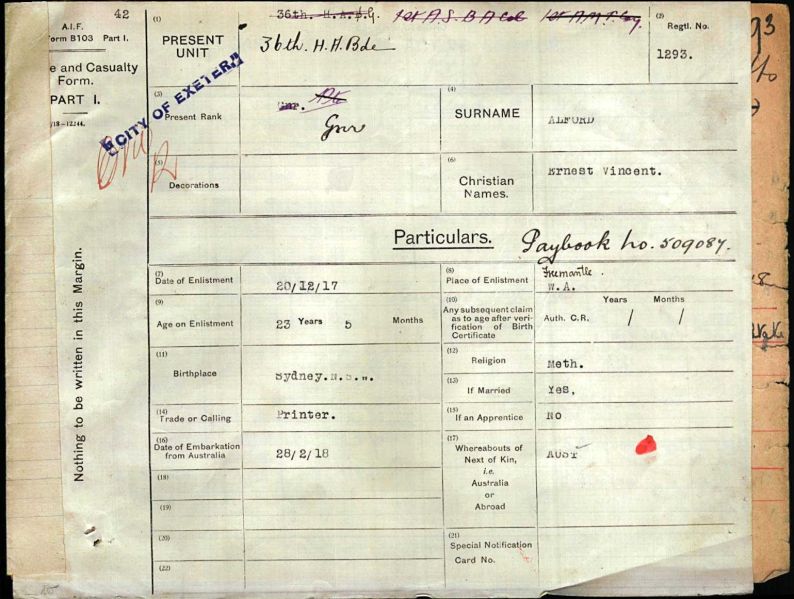 42
A.I.F.
Form B103 Part I.
e and Casualty
Form.
PART I.
Nothing to be written in this Margin.
"CITY OF EXETER"
(1)
PRESENT
UNIT
36th. H.A.
1st A.S.B.A Col
36th. H.A Bde
(2)
Regtl. No.
1293.
(3)
Present Rank
Gnr. Pte
Gnr
(4)
SURNAME
ALFORD
(5)
Decorations
(6)
Christian
Names.
Ernest Vincent.
Particulars.
Paybook No. 509087.
(7)
Date of Enlistment
20/12/17
(8)
Place of Enlistment
Fremantle.
W.A.
(9)
Age on Enlistment
23 Years 5 Months
(10)
Any subsequent claim
as to age after veri-
fication of Birth
Certificate
Years Months
Auth. C.R. / /
(11)
Birthplace
Sydney.N.S.W.
(12)
Religion
Meth.
(13)
If Married
Yes.
(14)
Trade or Calling
Printer.
(15)
If an Apprentice
NO
(16)
Date of Embarkation
from Australia
28/2/18
(17)
Whereabouts of
Next of Kin,
i.e.
Australia
or
Abroad
AUST
(18)
(19)
(20)
(21)
Special Notification
Card No.
(22)